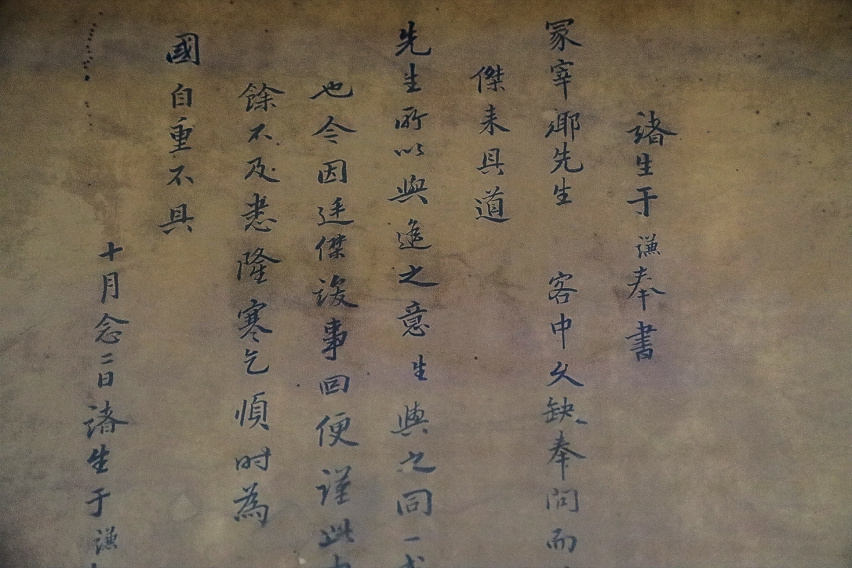 諸生于謙奉書
冢宰鄉先生　客中久缺奉問而
傑来具道
先生所以與進之意生與之同一
也今因廷傑竣事回便謹此
餘不及悉隆寒乞順時為
國自重不具
十月念二日諸生于謙